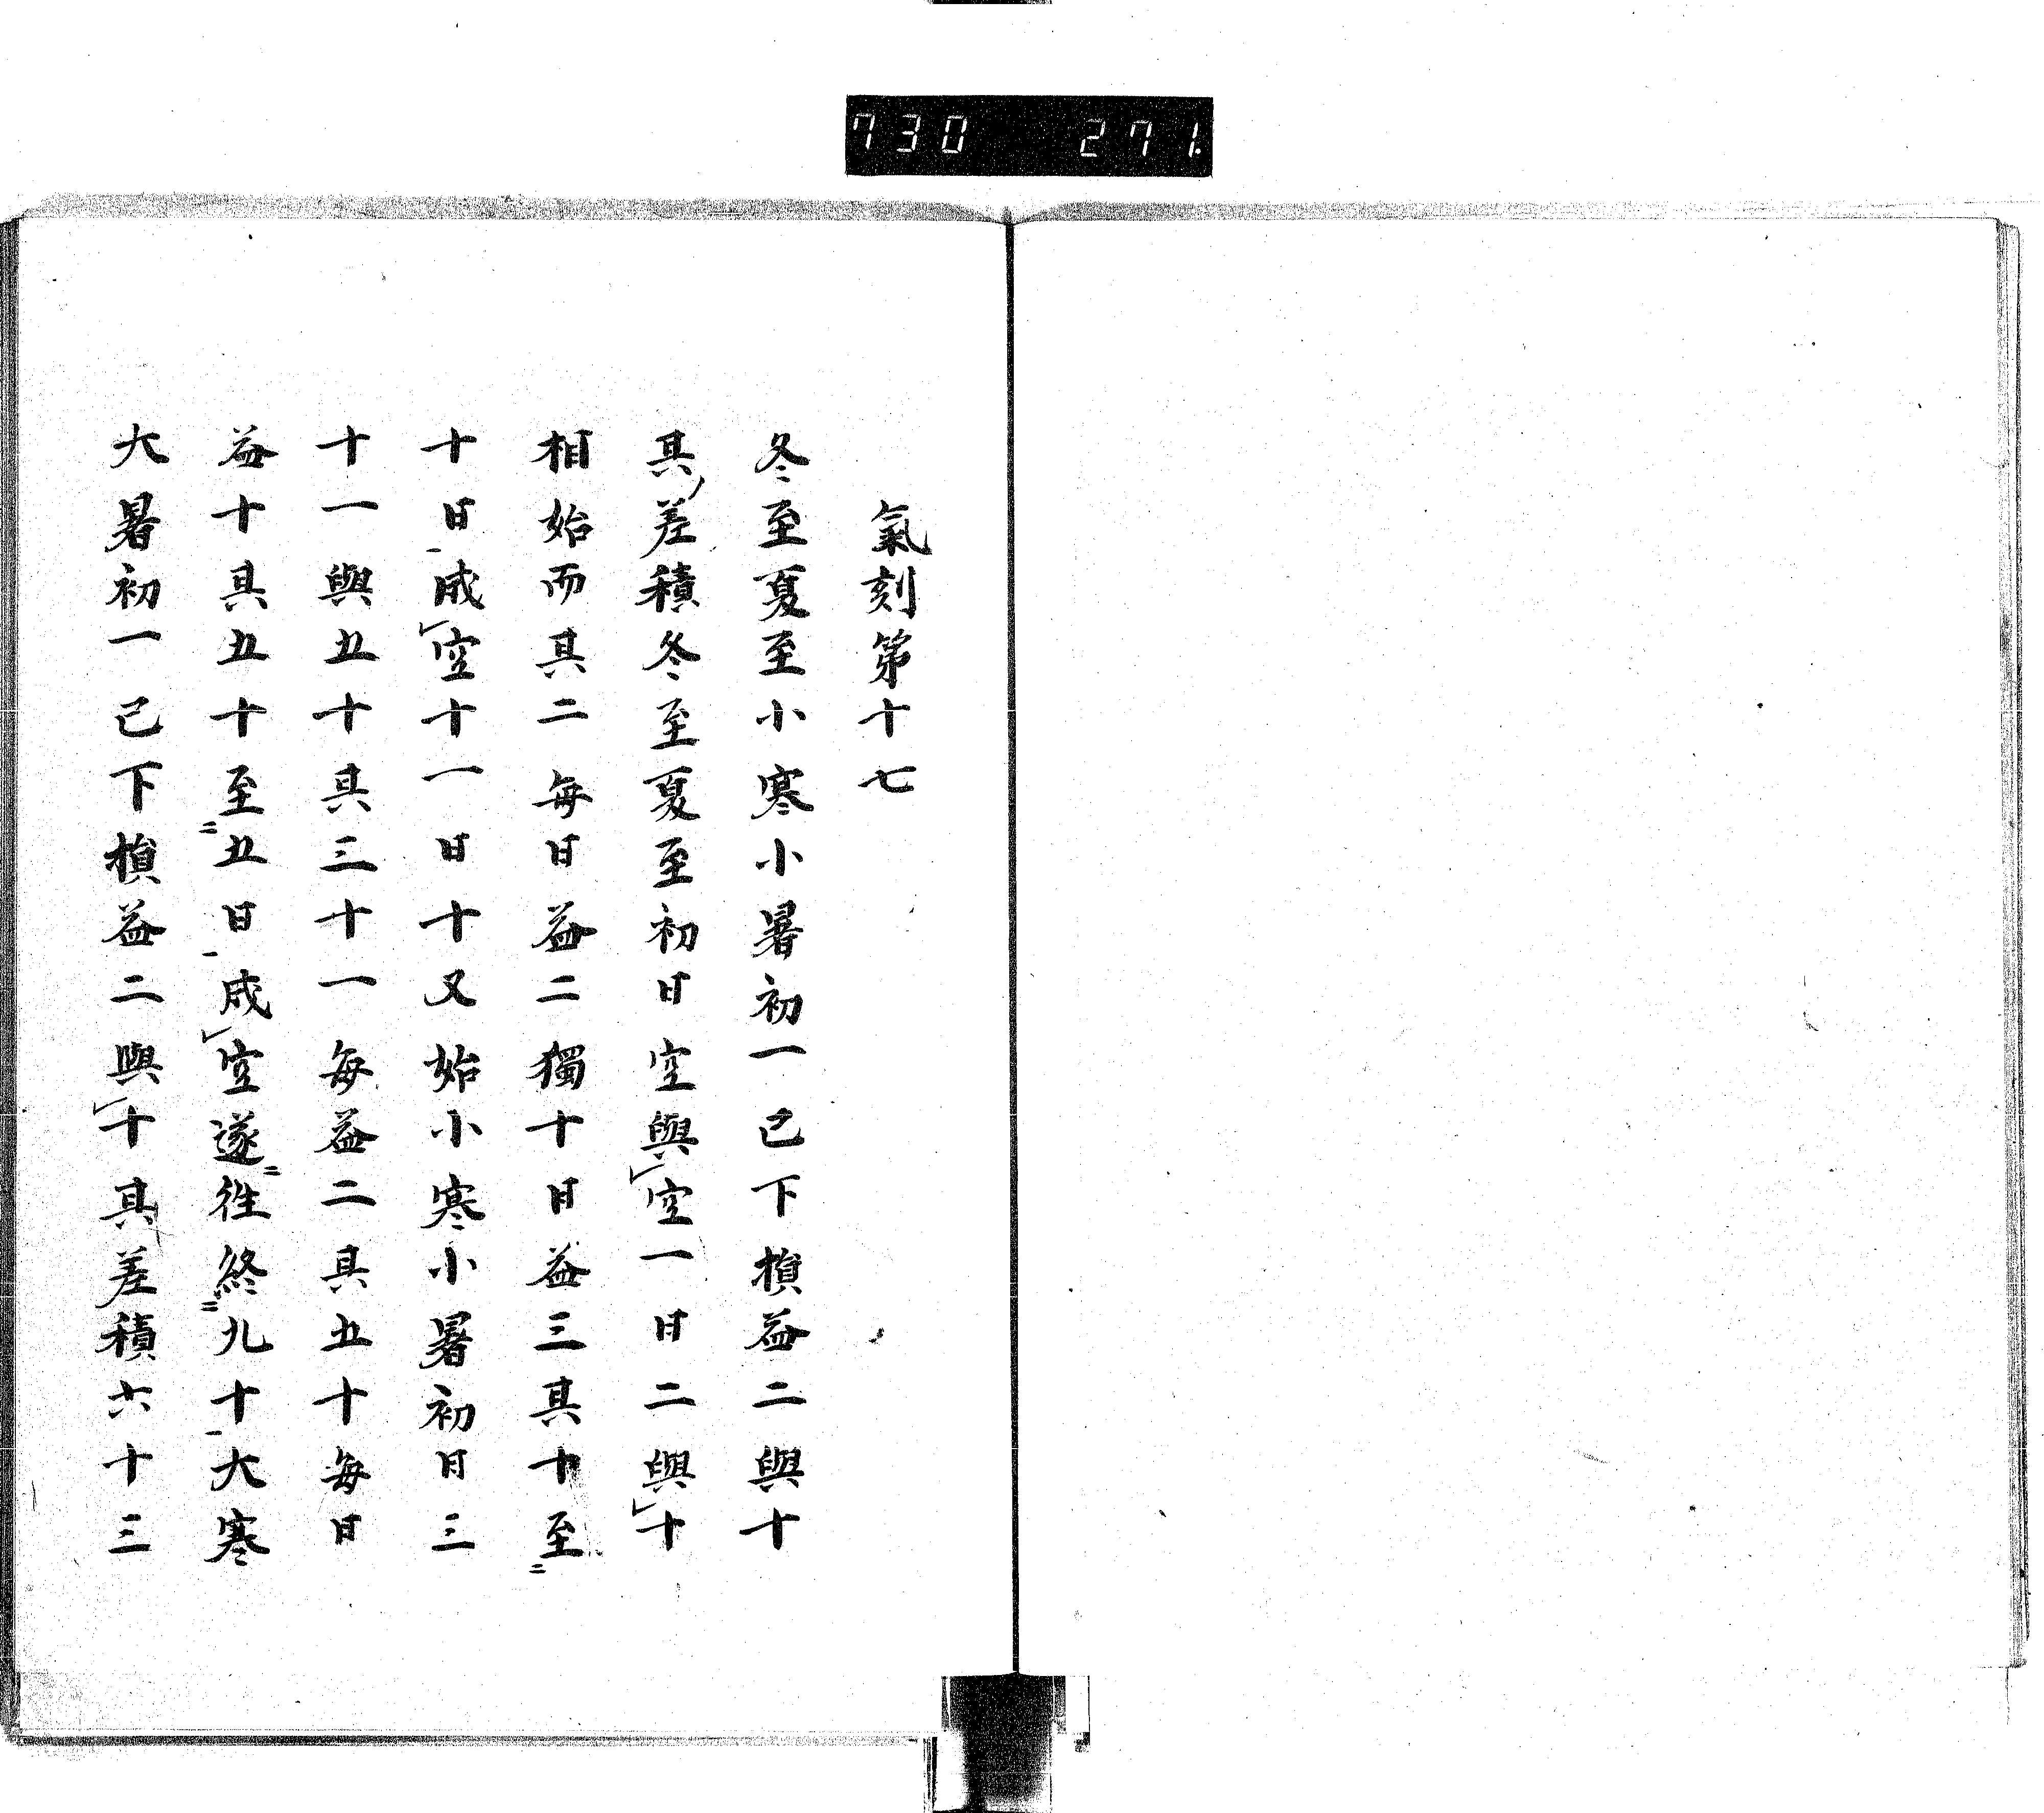 730 271
氣刻第十七
冬至夏至小寒小暑初一已下損益二與十
其差積冬至夏至初日空與空一日二與十
相始而其二每日益二獨十日益三其十至
十日成空十一日十又始小寒小暑初日三
十一與五十具三十一每益二具五十每日
益十具五十至五日成空遂徃終九十大寒
大暑初一已下損益二與十其差積六十三